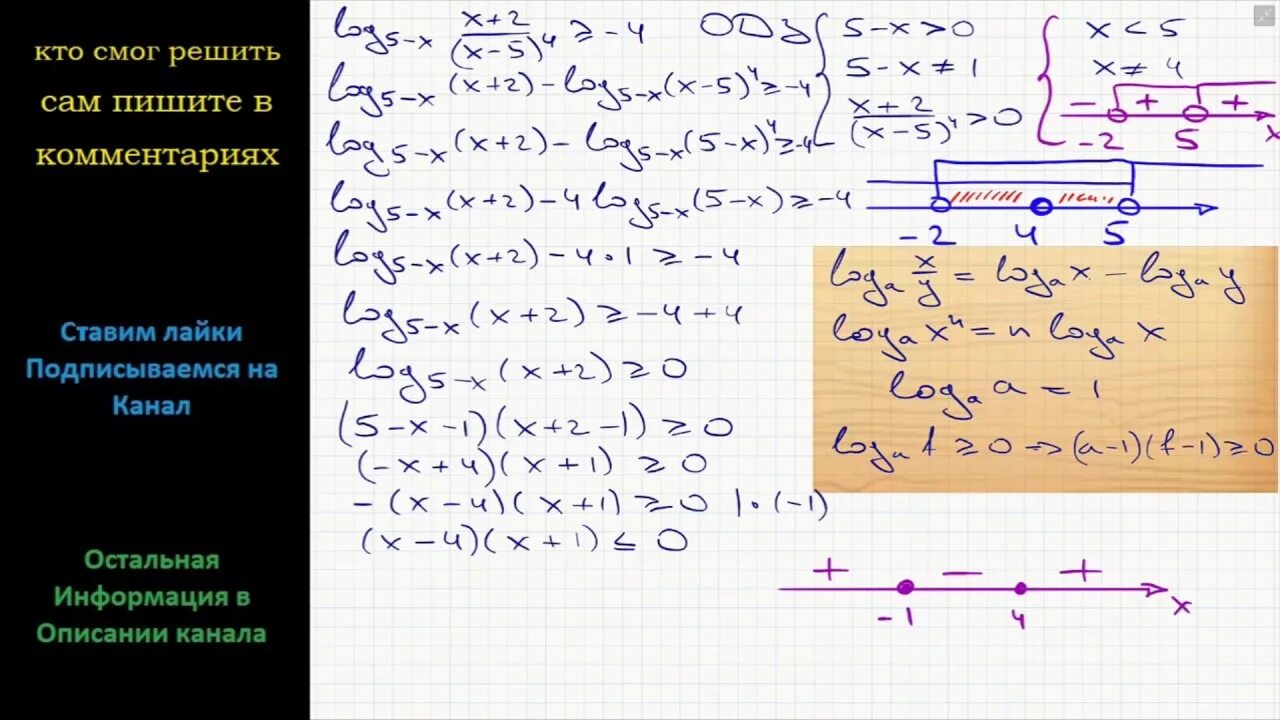 кто смог решить
сам пишите в
комментариях
Ставим лайки
Подписываемся на
Канал
Остальная
Информация в
Описании канала
log₅₋ₓ (x+2)/(x-5)⁴ ≥ -4
log₅₋ₓ(x+2) - log₅₋ₓ(x-5)⁴ ≥ -4
log₅₋ₓ(x+2) - log₅₋ₓ(5-x)⁴ ≥ -4
log₅₋ₓ(x+2) - 4 log₅₋ₓ(5-x) ≥ -4
log₅₋ₓ(x+2) - 4·1 ≥ -4
log₅₋ₓ(x+2) ≥ -4+4
log₅₋ₓ(x+2) ≥ 0
(5-x-1)(x+2-1) ≥ 0
(-x+4)(x+1) ≥ 0
-(x-4)(x+1) ≥ 0 |·(-1)
(x-4)(x+1) ≤ 0
ОДЗ
5-x > 0
5-x ≠ 1
(x+2)/(x-5)⁴ > 0
x < 5
x ≠ 4
- + +
-2 5 x
-2 4 5
logₐ x/y = logₐ x - logₐ y
logₐ xⁿ = n logₐ x
logₐ a = 1
logₐ f ≥ 0 → (a-1)(f-1) ≥ 0
+ - +
-1 4 x